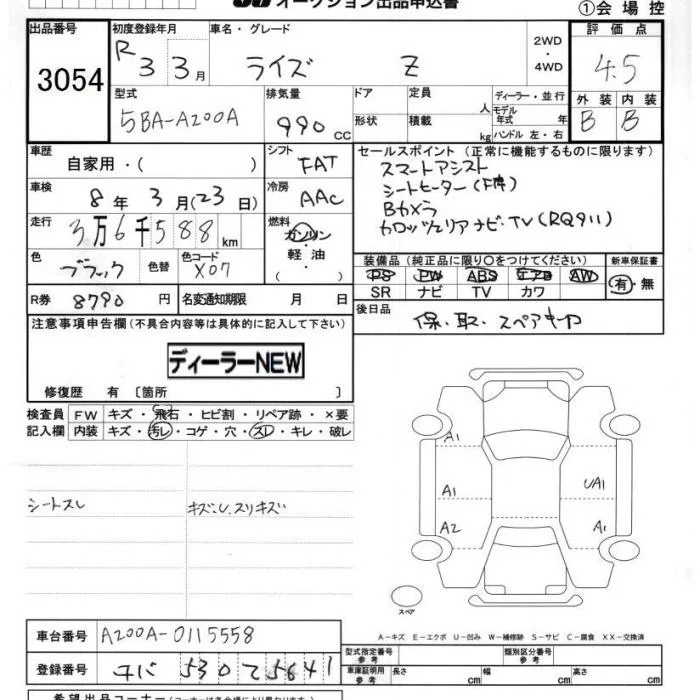 オークション出品申込書
①会場控
出品番号 3054
初度登録年月 R3 3月
車名・グレード ライズ Z
2WD・4WD
評価点 4.5
外装 B 内装 B
型式 5BA-A200A
排気量 990cc
ドア形状
定員 人
積載 kg
ディーラー・並行
モデル年式 年
ハンドル 左・右
車歴 自家用・( )
シフト FAT
車検 8年3月(23日)
冷房 AAC
走行 3万6千588km
燃料 ガソリン・軽油・( )
色 ブラック 色替
色コード X07
R券 8790円
名変通知期限 月 日
セールスポイント(正常に機能するものに限ります)
スマートアシスト
シートヒーター(F席)
Bカメラ
カロッツェリアナビ・TV(RQ911)
装備品(純正品に限り○をつけてください)
PS PW ABS エアB AW
SR ナビ TV カワ
新車保証書
有・無
後日品 保・取・スペアキー
注意事項申告欄(不具合内容等は具体的に記入して下さい)
ディーラーNEW
修復歴 有〔箇所 〕
検査員記入欄
FW キズ・飛石・ヒビ割・リペア跡・×要
内装 キズ・汚レ・コゲ・穴・スレ・キレ・破レ
シートスレ
キズ、U、スリキズ
A1
A1
UA1
A2
A1
スペア
A-キズ E-エクボ U-凹み W-補修跡 S-サビ C-腐食 XX-交換済
車台番号 A200A-0115558
登録番号 530 て 5641
型式指定番号 参考
類別区分番号 参考
車庫証明用 参考
長さ cm
幅 cm
高さ cm
希望出品コーナー